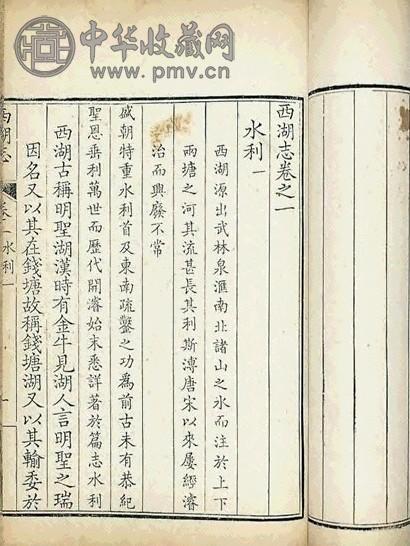 中华收藏网
www.pmv.cn
西湖志卷之一
水利一
西湖源出武林泉滙南北諸山之水而注於上下
兩塘之河其流甚長其利斯溥唐宋以來屢經濬
治而興廢不常
盛朝特重水利首及東南疏鑿之功為前古未有恭紀
聖恩垂利萬世而歷代開濬始末悉詳著於篇志水利
西湖古稱明聖湖漢時有金牛見湖人言明聖之瑞
因名又以其在錢塘故稱錢塘湖又以其輸委於
西湖志
卷一 水利一
一